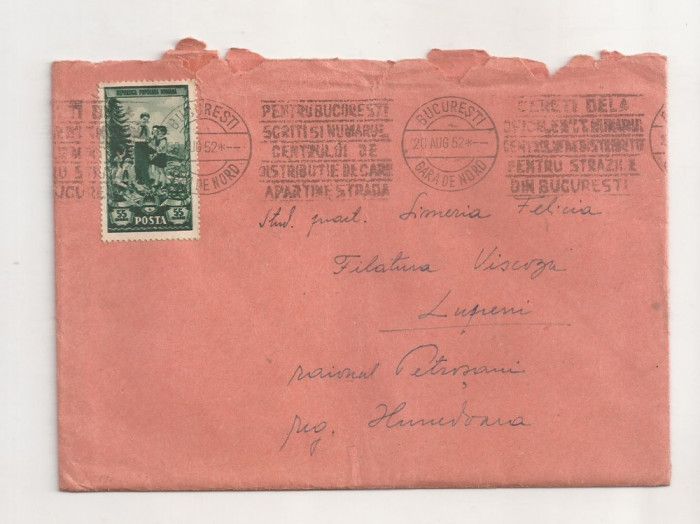 REPUBLICA POPULARA ROMÂNA
55 POSTA 55
BUCURESTI
20 AUG 52
GARA DE NORD
PENTRU BUCURESTI
SCRITI SI NUMARUL
CENTRULUI DE
DISTRIBUTIE DE CARE
APARTINE STRADA
BUCURESTI
20 AUG 52
GARA DE NORD
CERETI DELA
OFICIILE P.T.T. NUMARUL
CENTRULUI DE DISTRIBUTIE
PENTRU STRAZILE
DIN BUCURESTI
Stud. pract. Simeria Felicia
Filatura Viscoză
Lupeni
raionul Petroșani
reg. Hunedoara